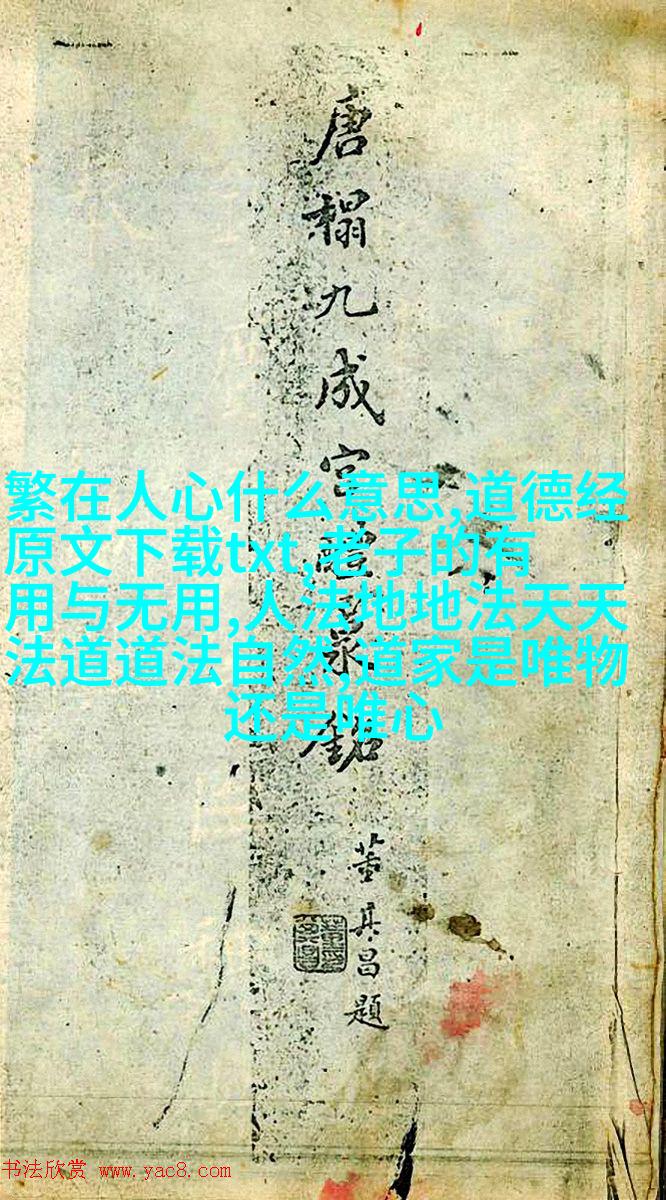 唐榻九成宫醴泉銘
董其昌題
繁在人心什么意思,道德经
原文下载txt,老子的有
用与无用,人法地地法天天
法道道法自然,道家是唯物
还是唯心
书法欣赏 www.yac8.com